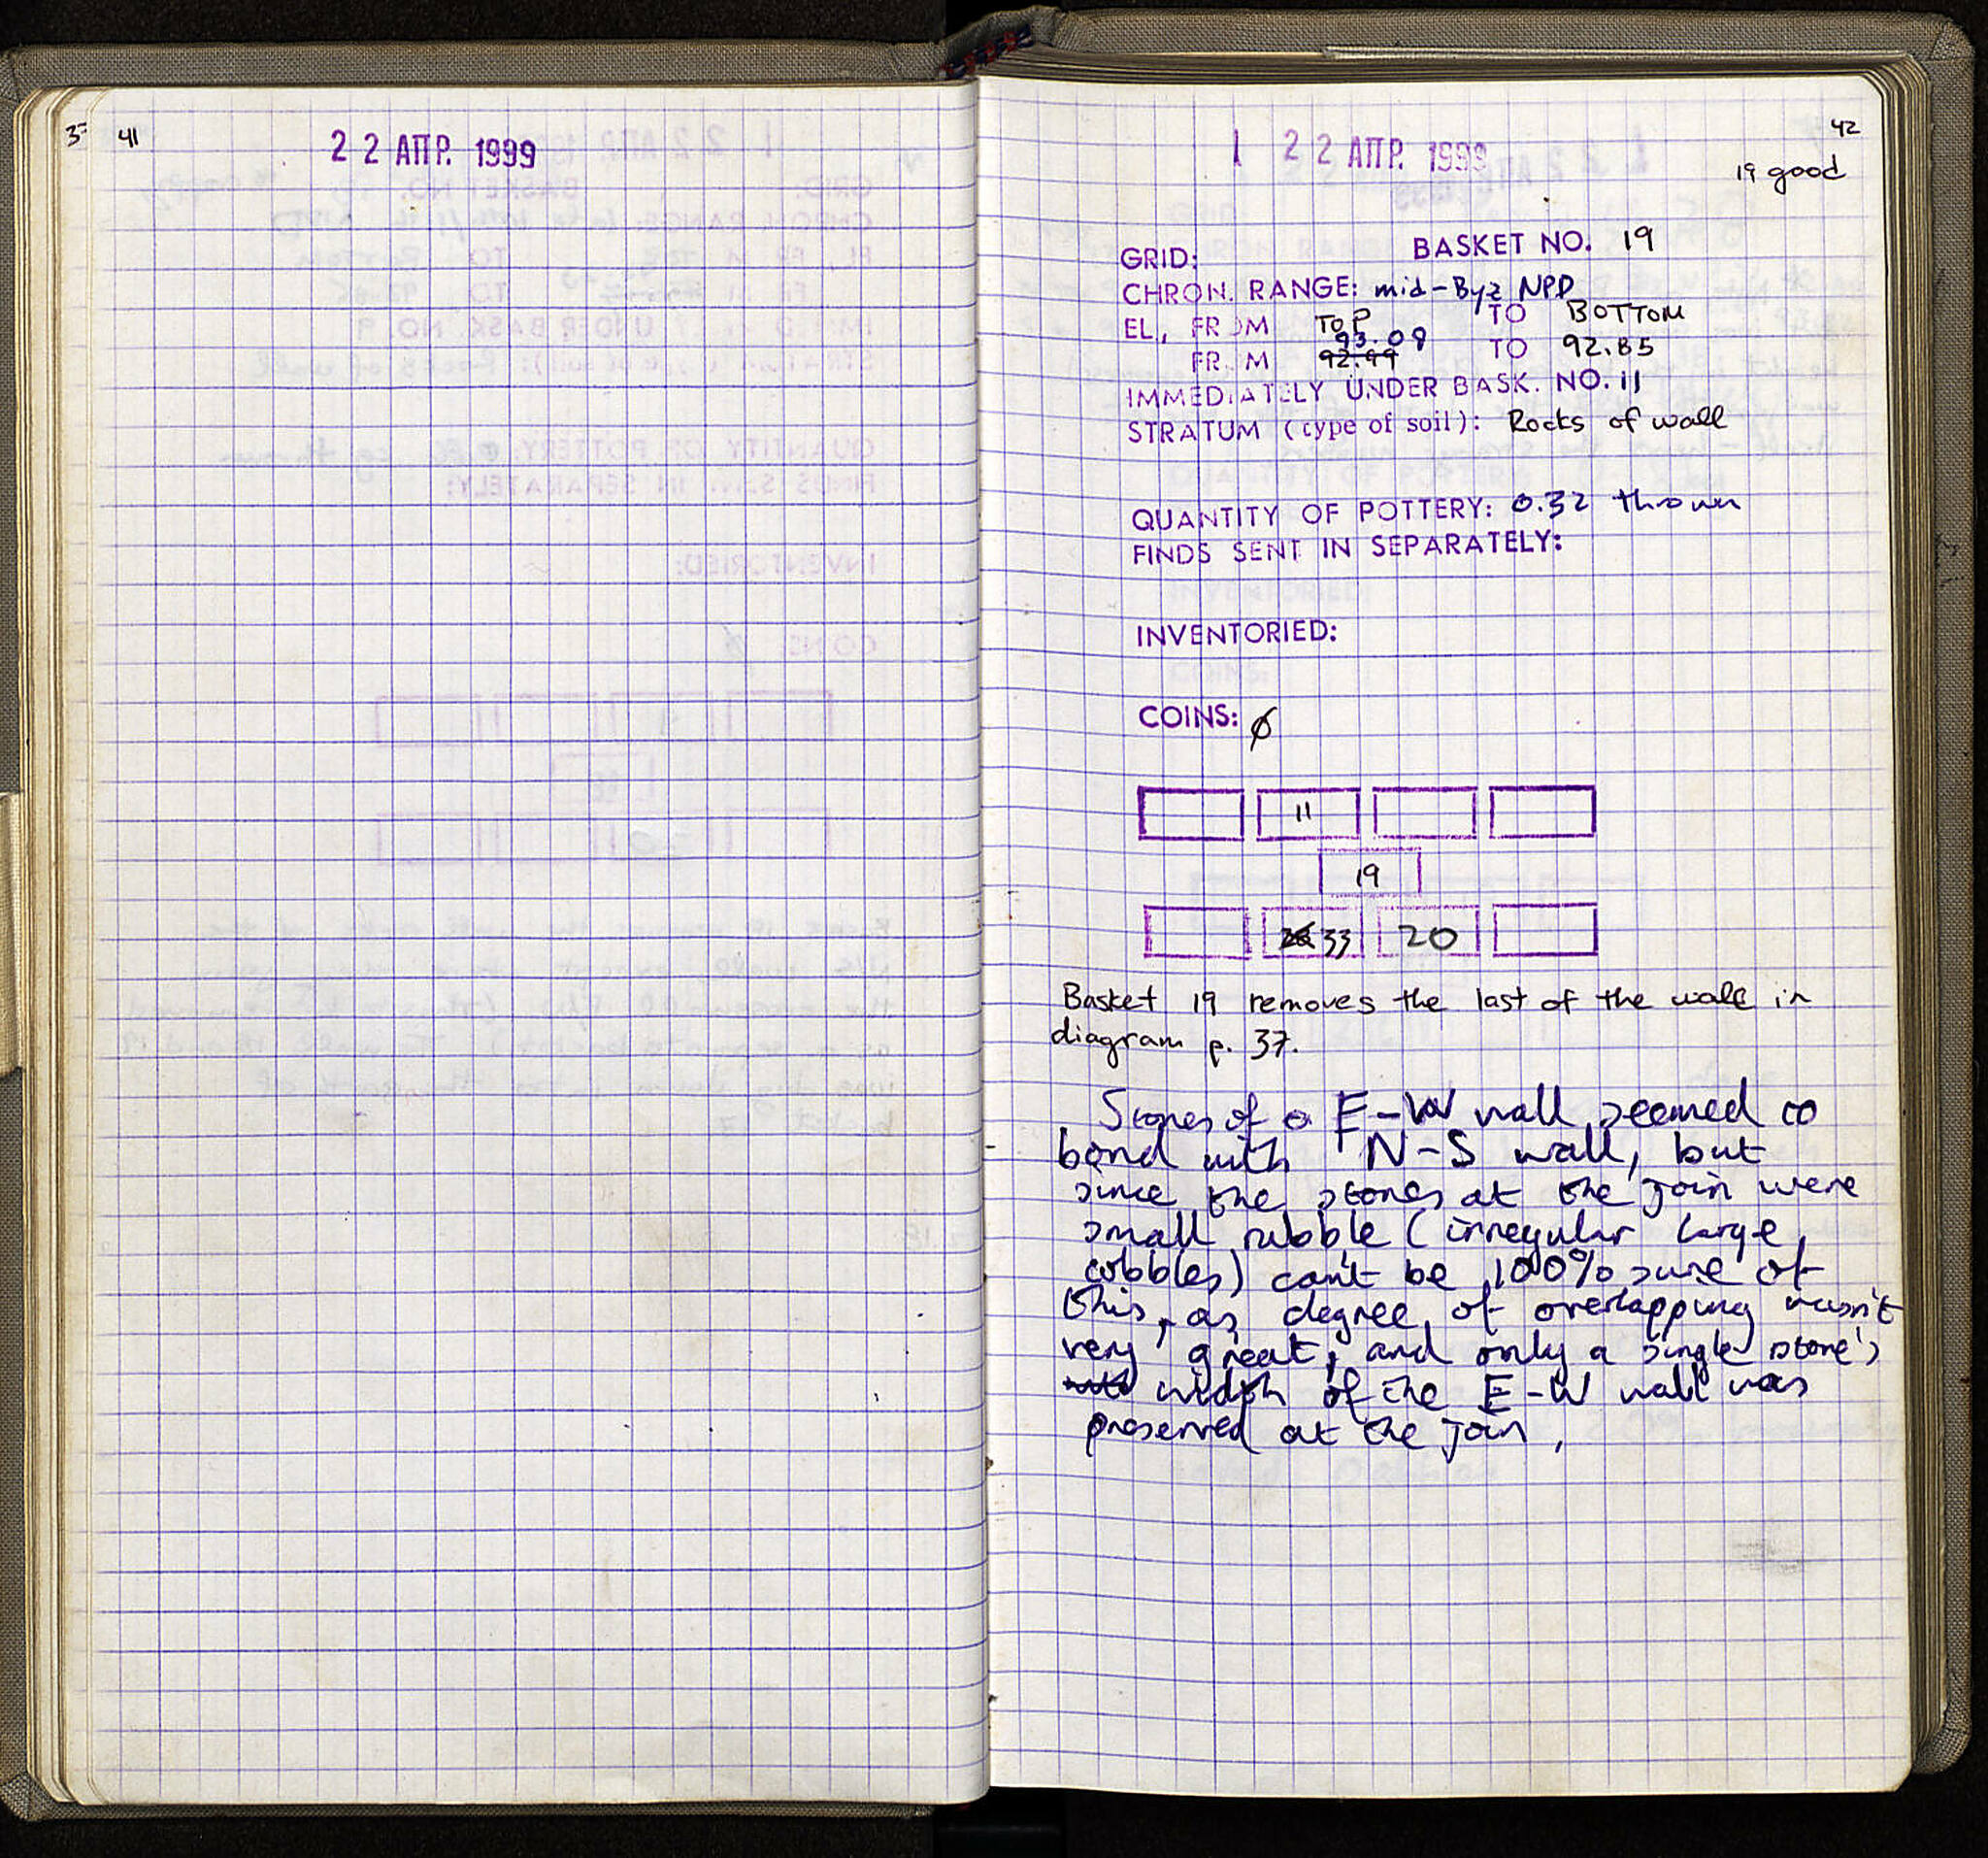 41
22 ΑΠΡ. 1999
1 22 ΑΠΡ. 1999
42
19 good
GRID: BASKET NO. 19
CHRON. RANGE: mid-Byz NPD
EL., FROM TOP TO BOTTOM
93.09
FROM 92.99 TO 92.85
IMMEDIATELY UNDER BASK. NO. 11
STRATUM (type of soil): Rocks of wall
QUANTITY OF POTTERY: 0.32 thrown
FINDS SENT IN SEPARATELY:
INVENTORIED:
COINS: ∅
11
19
33 20
Basket 19 removes the last of the wall in
diagram p. 37.
Stones of a E-W wall seemed to
bond with N-S wall, but
since the stones at the join were
small rubble (irregular large
cobbles) can't be 100% sure of
this, as degree of overlapping wasn't
very great, and only a single stone's
width of the E-W wall was
preserved at the join,